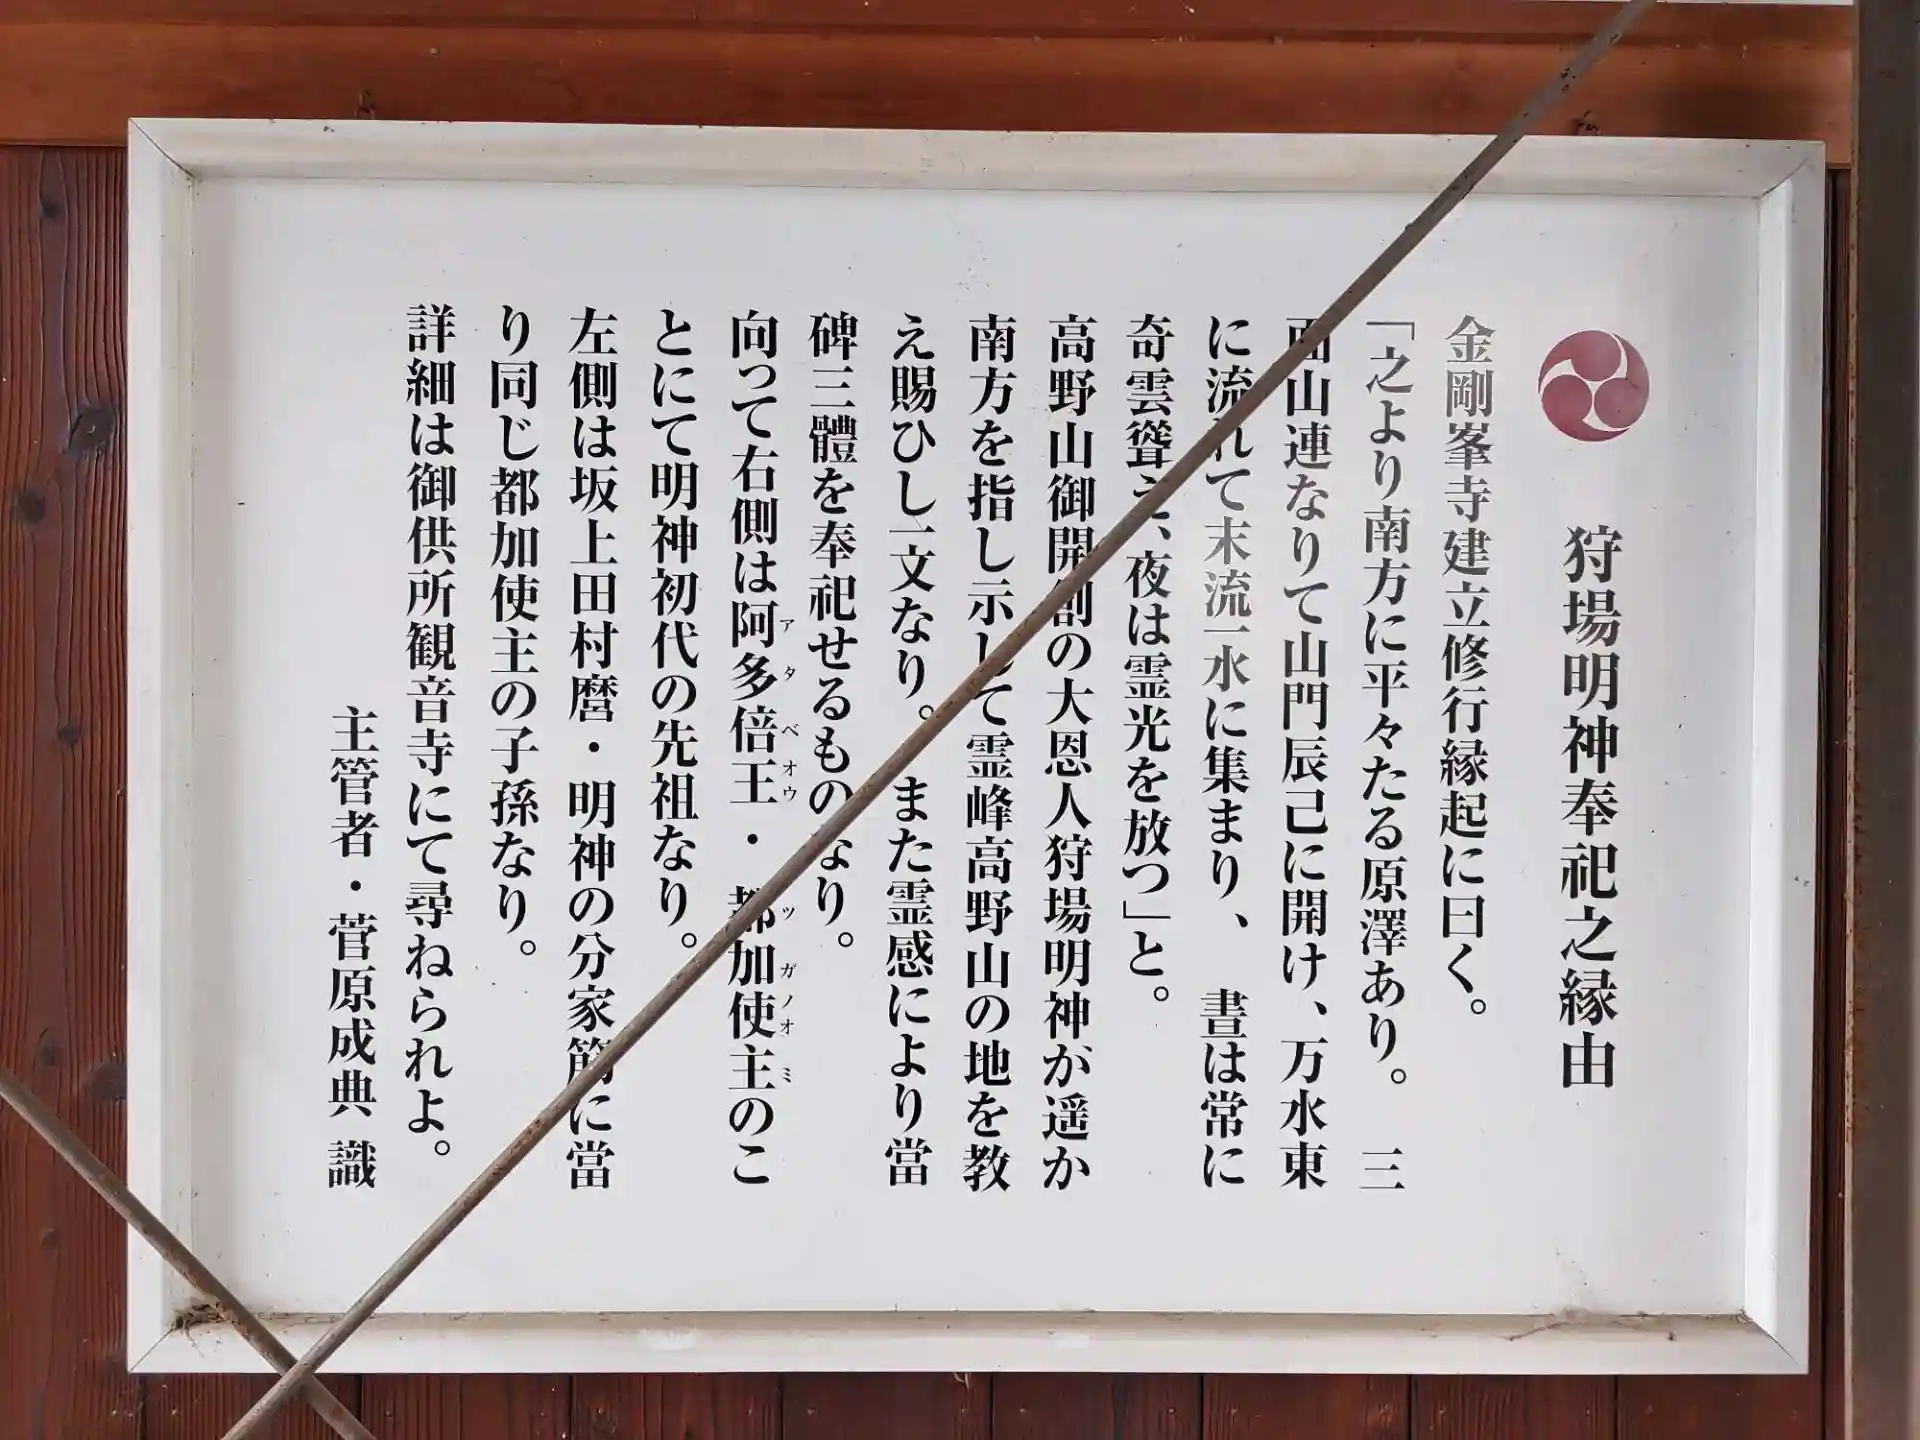 狩場明神奉祀之縁由
金剛峯寺建立修行縁起に曰く。
「之より南方に平々たる原澤あり。　三
面山連なりて山門辰己に開け、万水東
に流れて末流一水に集まり、　晝は常に
奇雲聳え、夜は霊光を放つ」と。
高野山御開創の大恩人狩場明神が遥か
南方を指し示して霊峰高野山の地を教
え賜ひし一文なり。　また霊感により當
碑三體を奉祀せるものなり。
向って右側は阿多倍王・　都加使主のこ
アタベオウ　ツガノオミ
とにて明神初代の先祖なり。
左側は坂上田村麿・明神の分家筋に當
り同じ都加使主の子孫なり。
詳細は御供所観音寺にて尋ねられよ。
主管者・菅原成典　識